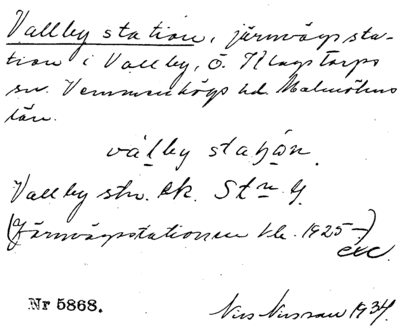 Vallby station, järnvägssta-
tion i Vallby, Ö. Klagstorps
sn. Vemmenhögs hd. Malmöhus
län.
válby staʃón.
Vallby stn. ek. St
(Järnvägsstationen bl. 1925-)
exc.
Nr 5868.
Nils 1934.